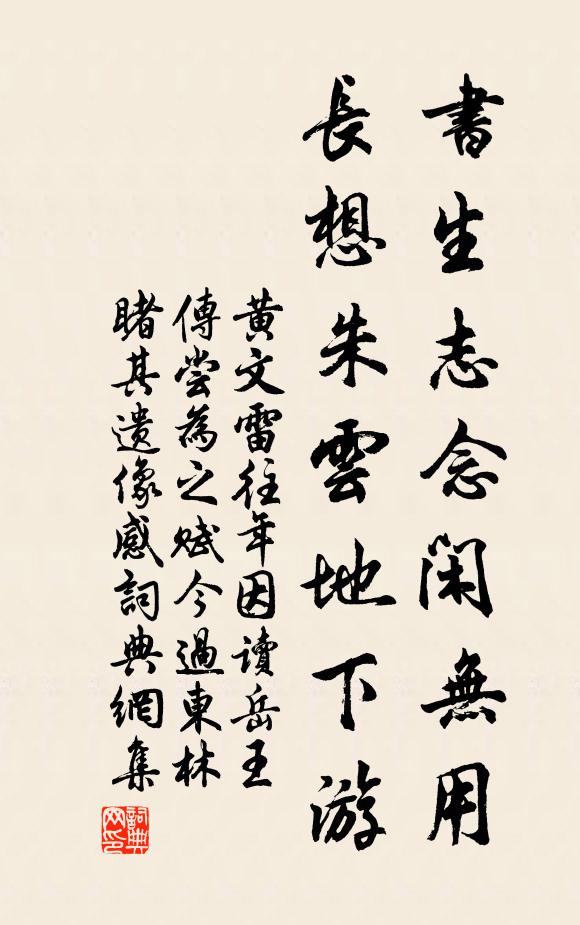 書生志念閑無用
長想朱雲地下游
黄文雷往年因讀岳王
傳嘗為之賦今過東林
睹其遺像感詞典網集
詞典網印